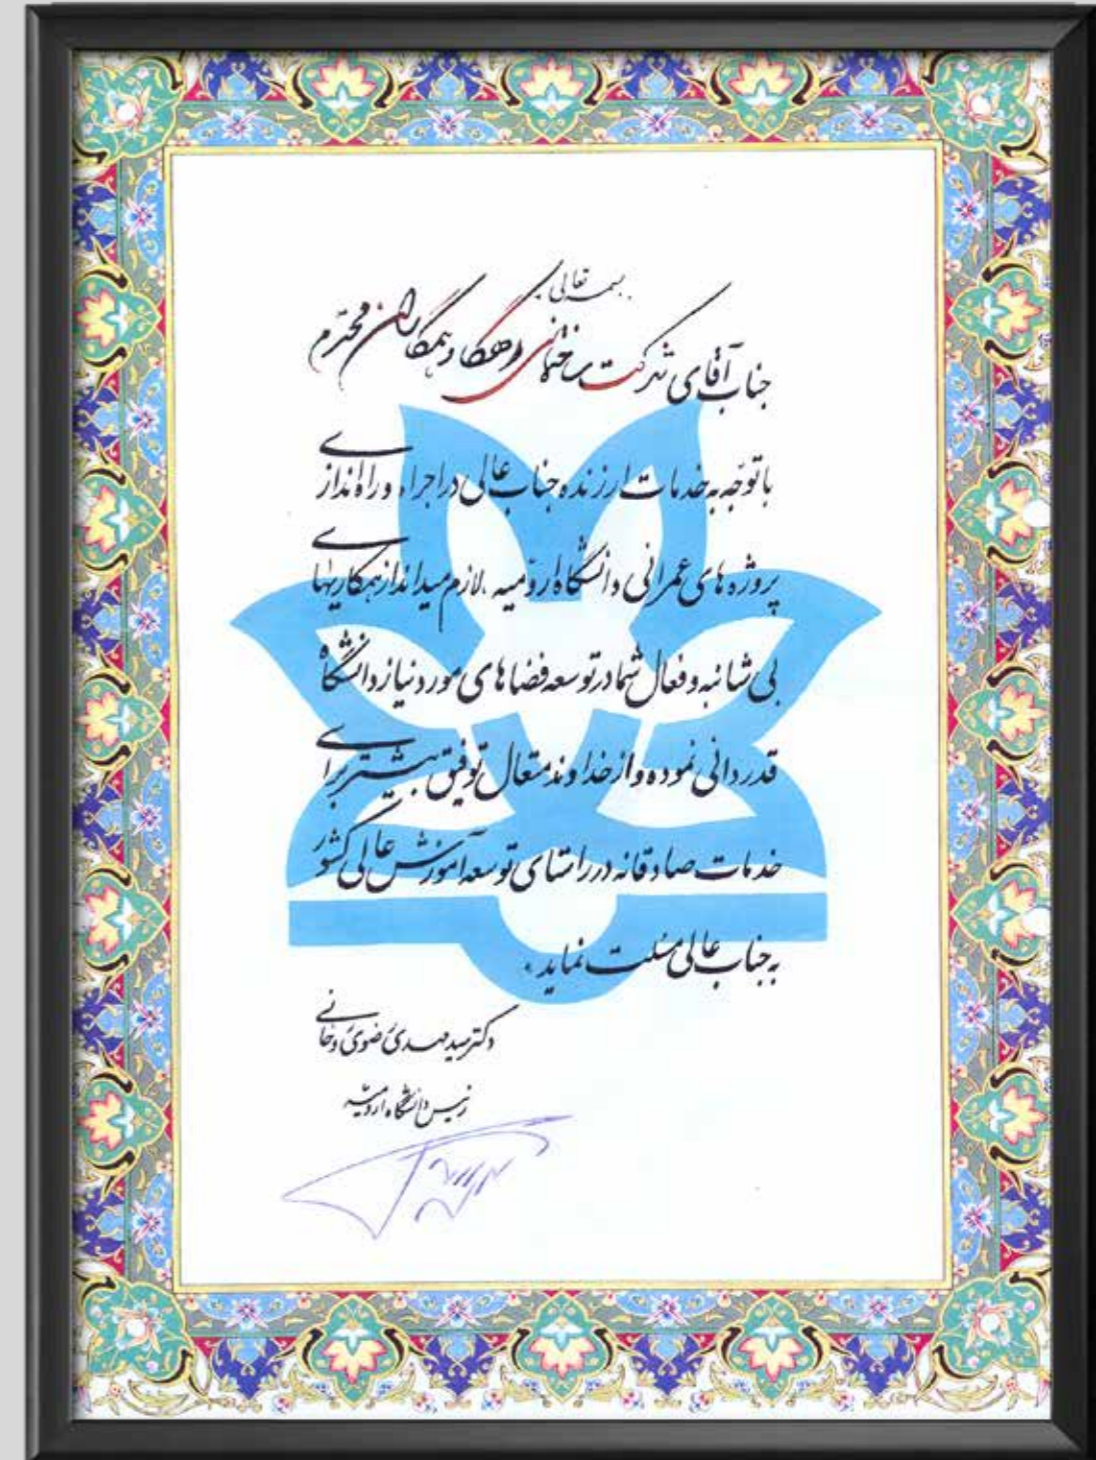 بسمه تعالی
جناب آقای شرکت ساختمانی رهگا و همکاران محترم
با توجه به خدمات ارزنده جناب عالی در اجراء و راه اندازی
پروژه های عمرانی دانشگاه ارومیه لازم میداند از همکاریهای
بی شائبه و فعال شما در توسعه فضاهای مورد نیاز دانشگاه
قدردانی نموده و از خداوند متعال توفیق بیشتر برای
خدمات صادقانه در راستای توسعه آموزش عالی کشور
به جناب عالی مسئلت نماید.
دکتر سید مهدی رضوی روحانی
رئیس دانشگاه ارومیه